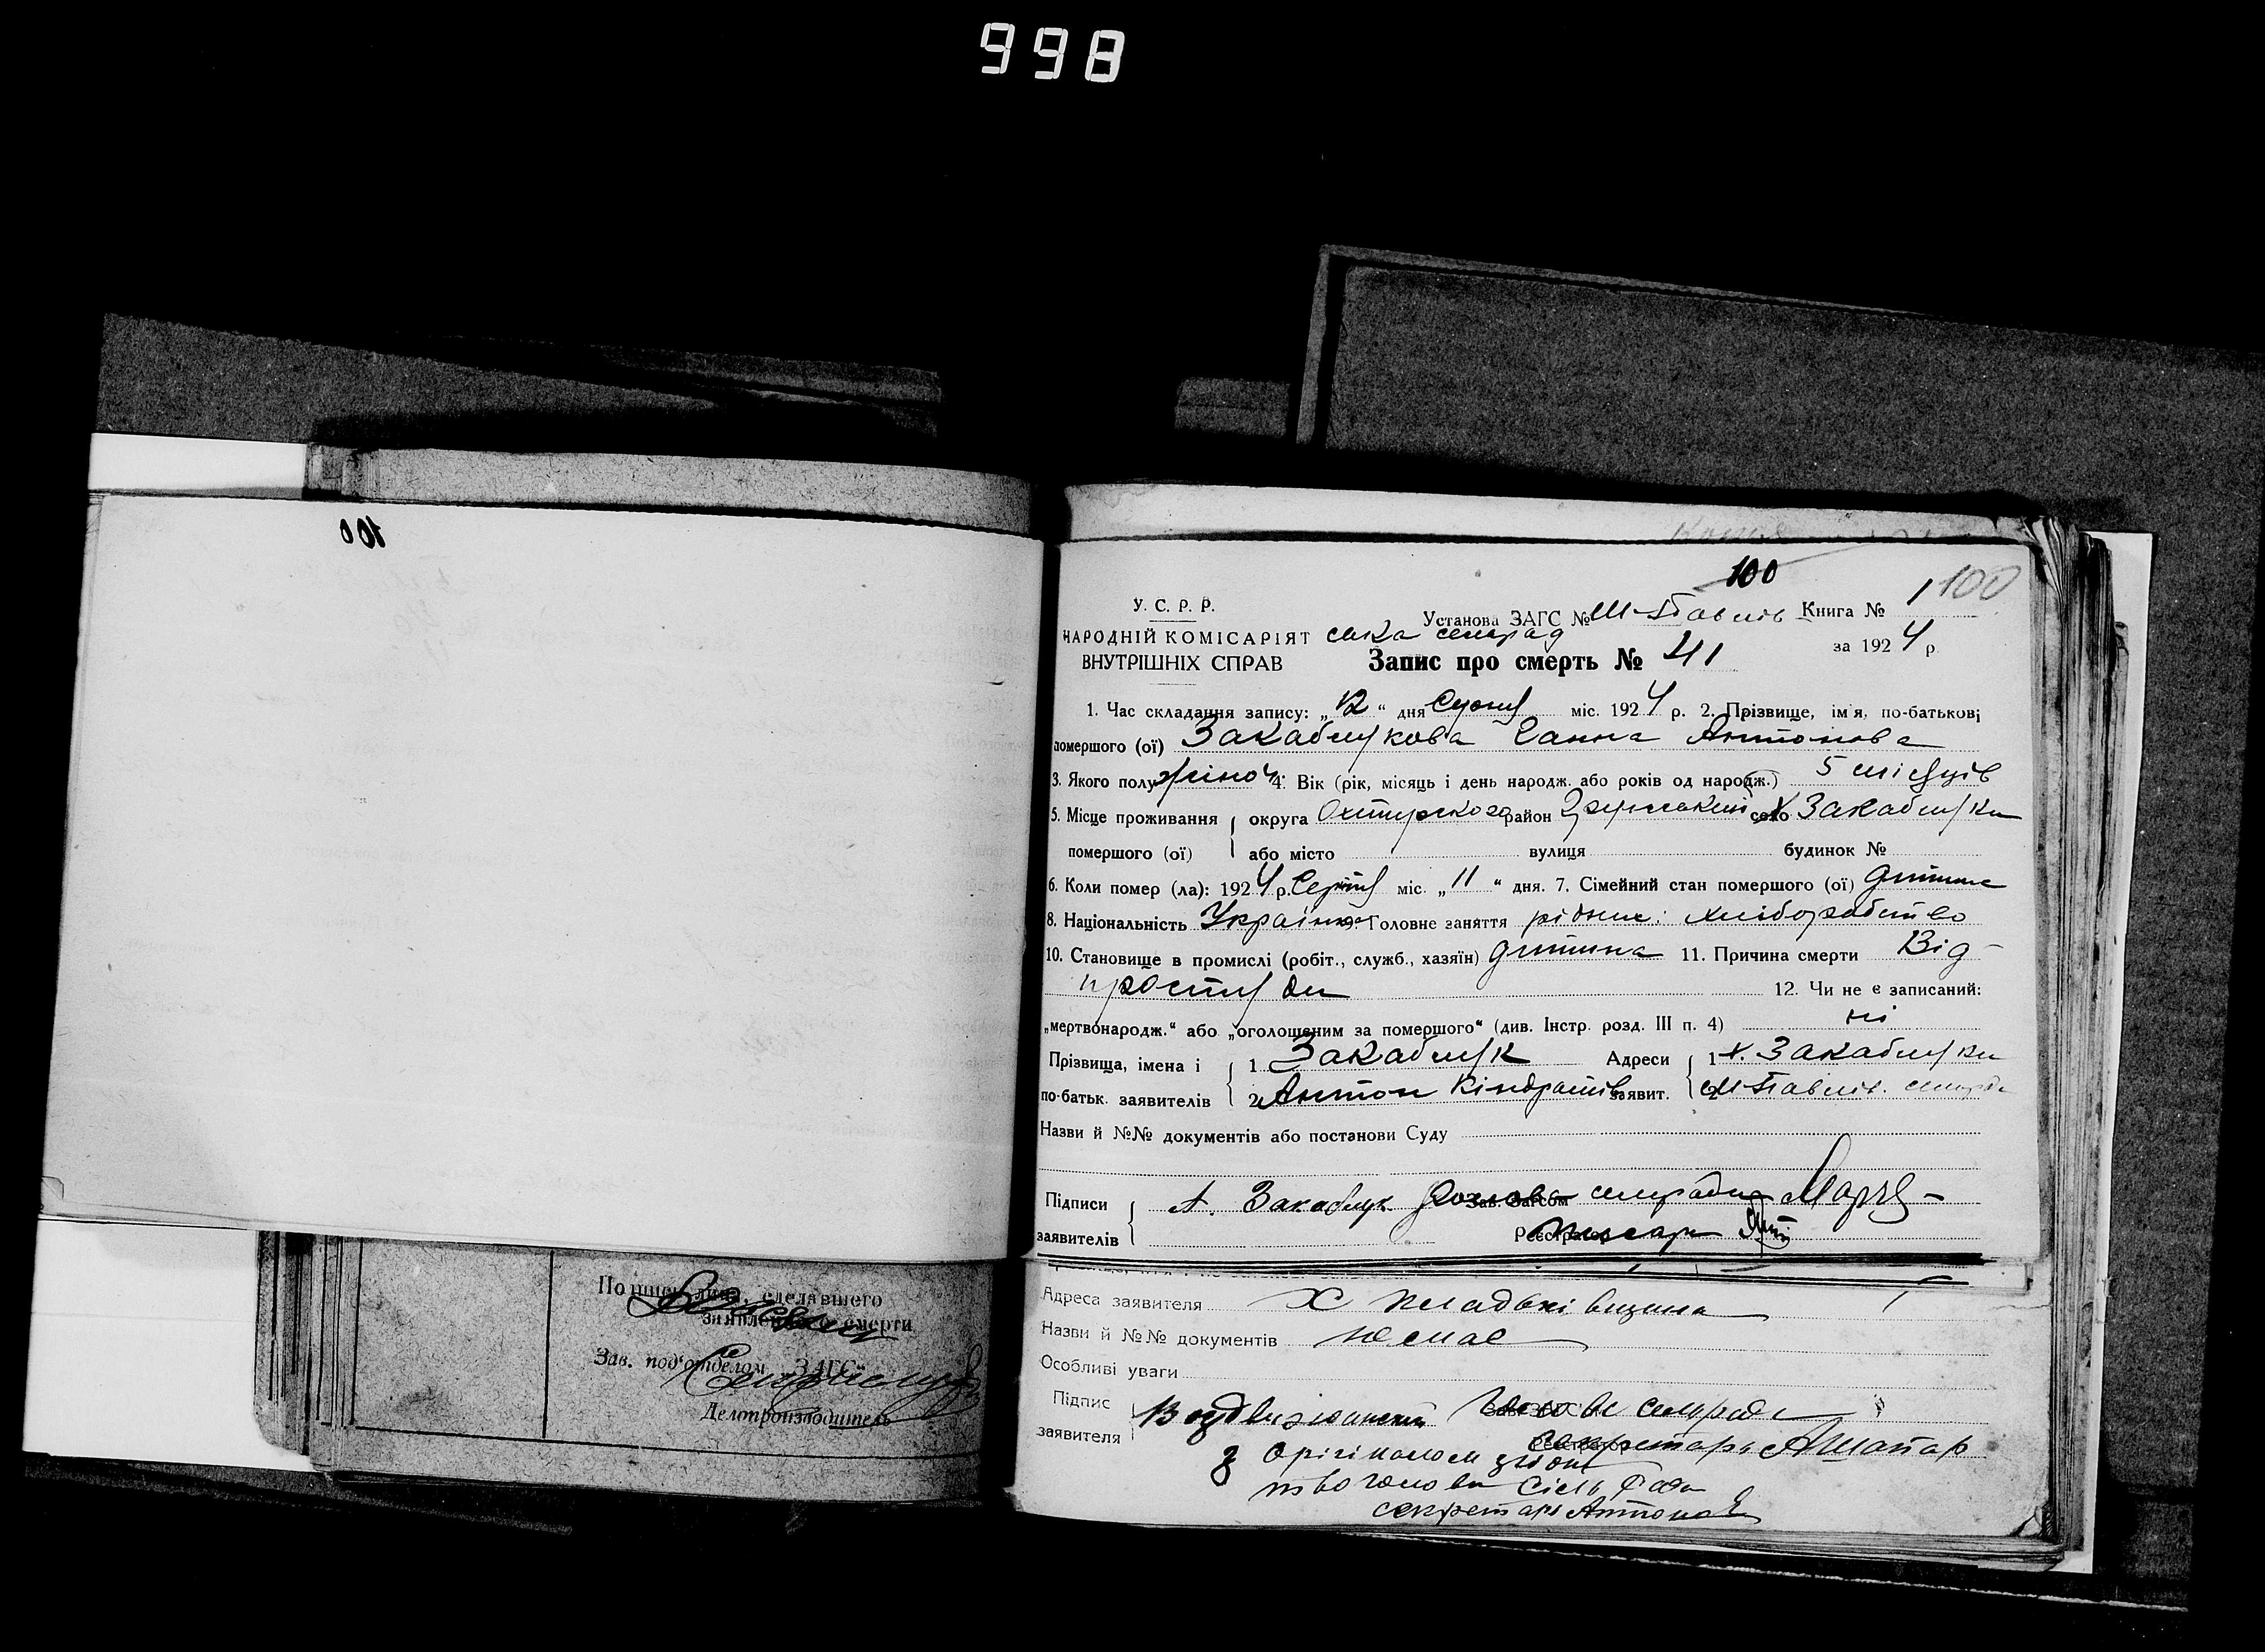 998
100
100
100
У. С. Р. Р.
НАРОДНІЙ КОМІСАРІЯТ
ВНУТРІШНІХ СПРАВ
Установа ЗАГС № Ш-Павлів Книга № 1
ська сельрад
за 1924 р.
Запис про смерть № 41
1. Час складання запису: „12“ дня Серпня міс. 1924 р. 2. Прізвище, ім'я, по-батькові
помершого (ої) Закаблукова Ганна Антонова
3. Якого полу жіноч 4. Вік (рік, місяць і день народж. або років од народж.) 5 місяців
5. Місце проживання округа Охтирского район село х Закаблуки
помершого (ої) або місто вулиця будинок №
6. Коли помер (ла): 1924 р. Серпня міс. „11“ дня. 7. Сімейний стан помершого (ої) дитина
8. Національність Україн 9. Головне заняття рідних: хліборобство
10. Становище в промислі (робіт., служб., хазяїн) дитина 11. Причина смерти Від
простуди 12. Чи не є записаний:
„мертвонародж.“ або „оголошеним за помершого“ (див. Інстр. розд. III п. 4) ні
Прізвища, імена і 1 Закаблук Адреси 1 х. Закаблуки
по-батьк. заявителів 2 Антон Кіндратів заявит. 2 Ш-Павлів.
Назви й №№ документів або постанови Суду
Підписи А. Закаблук Зав. Загсом Голова сельради
заявителів Реєстратор Писарь
Подпись лица, сделавшего
заявление о смерти
Зав. под'отделом „ЗАГС“
Делопроизводитель
Адреса заявителя х
Назви й №№ документів немає
Особливі уваги
Підпис Воздвиженский Голова сельради
заявителя Секретарь АШапар
З Орігіналом згідно
Голови Сільради
секретарь